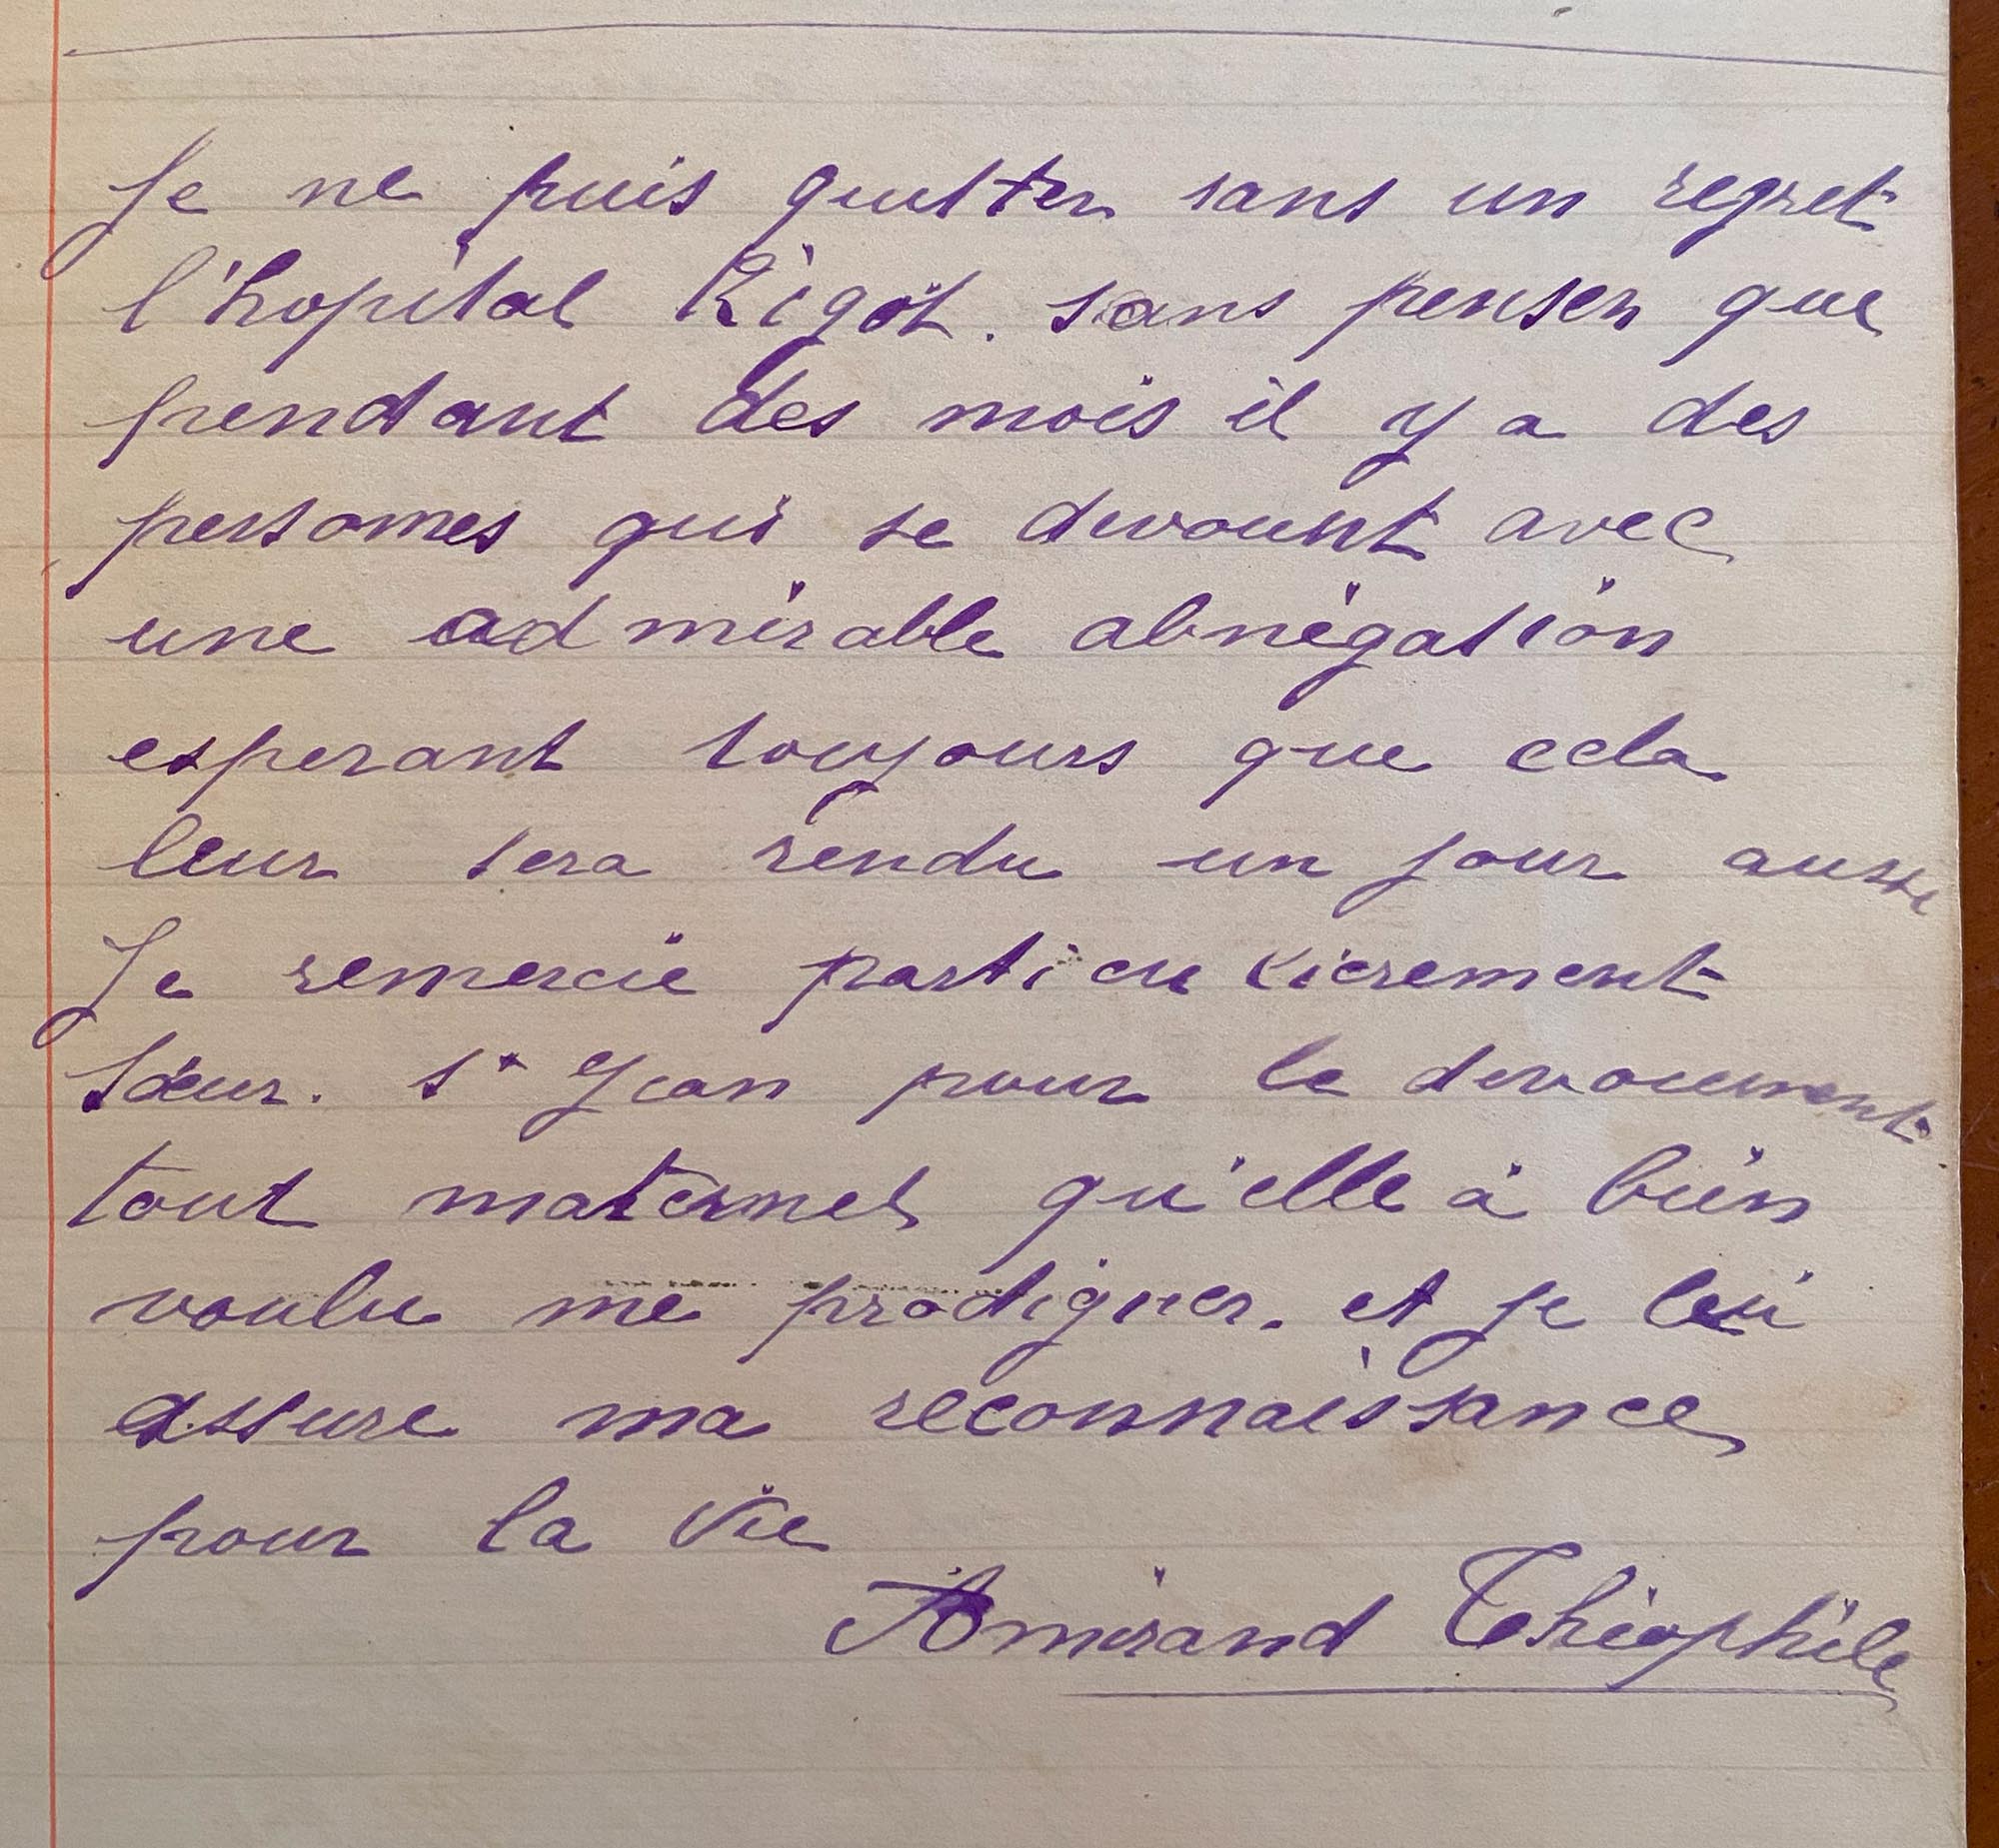 Je ne puis quitter sans un regret
l'hopital Rigot. sans penser que
pendant des mois il y a des
personnes qui se devouent avec
une admirable abnégation
esperant toujours que cela
leur sera rendu un jour aussi
Je remercie particulierement
Sœur. St Jean pour le devouement
tout maternel qu'elle à bien
voulu me prodiguer. et je lui
assure ma reconnaissance
pour la vie
Amirand Théophile